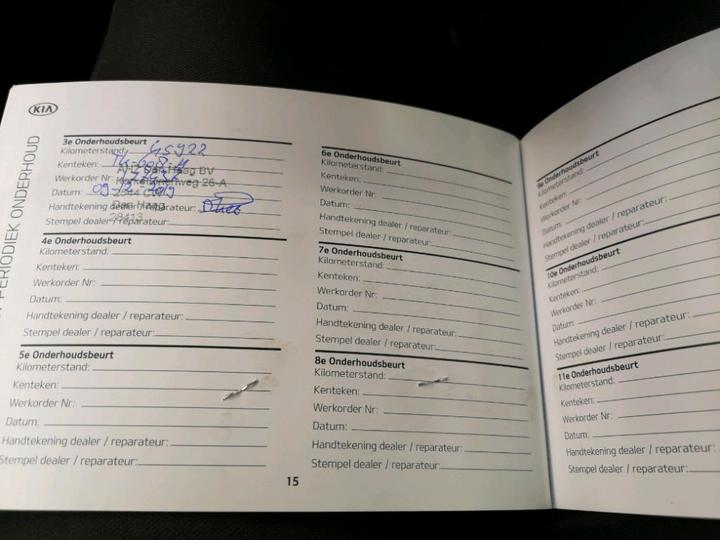 KIA
PERIODIEK ONDERHOUD
3e Onderhoudsbeurt
Kilometerstand: 45922
Kenteken:
Werkorder Nr:
Datum:
Handtekening dealer / reparateur:
Den Haag
Stempel dealer / reparateur:
4e Onderhoudsbeurt
Kilometerstand:
Kenteken:
Werkorder Nr:
Datum:
Handtekening dealer / reparateur:
Stempel dealer / reparateur:
5e Onderhoudsbeurt
Kilometerstand:
Kenteken:
Werkorder Nr:
Datum:
Handtekening dealer / reparateur:
Stempel dealer / reparateur:
6e Onderhoudsbeurt
Kilometerstand:
Kenteken:
Werkorder Nr:
Datum:
Handtekening dealer / reparateur:
Stempel dealer / reparateur:
7e Onderhoudsbeurt
Kilometerstand:
Kenteken:
Werkorder Nr:
Datum:
Handtekening dealer / reparateur:
Stempel dealer / reparateur:
8e Onderhoudsbeurt
Kilometerstand:
Kenteken:
Werkorder Nr:
Datum:
Handtekening dealer / reparateur:
Stempel dealer / reparateur:
15
9e Onderhoudsbeurt
Kilometerstand:
Kenteken:
Werkorder Nr:
Datum:
Handtekening dealer / reparateur:
Stempel dealer / reparateur:
10e Onderhoudsbeurt
Kilometerstand:
Kenteken:
Werkorder Nr:
Datum:
Handtekening dealer / reparateur:
Stempel dealer / reparateur:
11e Onderhoudsbeurt
Kilometerstand:
Kenteken:
Werkorder Nr:
Datum:
Handtekening dealer / reparateur:
Stempel dealer / reparateur: